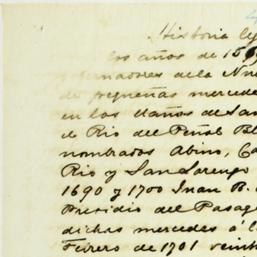 Historia
los años de 15
de la Nue
de pequeñas mercede
en los llanos de San
de Rio del Peñol Bl
nombrados Abino, Ca
Rio y San Lorenzo
1690 y 1700 Juan B.
Presidio del Pasag
dichas mercedes á l
Febrero de 1701 veint